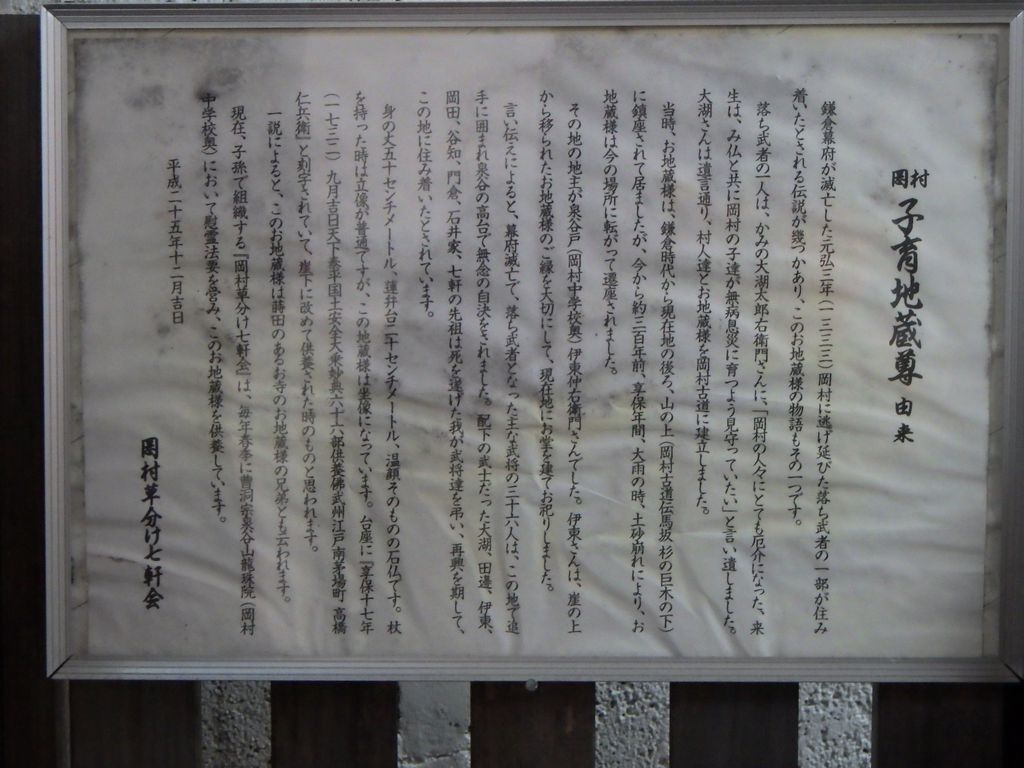 岡村 子育地蔵尊 由来
鎌倉幕府が滅亡した元弘三年(一三三三)岡村に逃げ延びた落ち武者の一部が住み
着いたとされる伝説が幾つかあり、このお地蔵様の物語もその一つです。
落ち武者の一人は、かみの大湖太郎右衛門さんに、「岡村の人々にとても厄介になった、来
生は、み仏と共に岡村の子達が無病息災に育つよう見守っていたい」と言い遺しました。
大湖さんは遺言通り、村人達とお地蔵様を岡村古道に建立しました。
当時、お地蔵様は、鎌倉時代から現在地の後ろ、山の上(岡村古道伝馬坂 杉の巨木の下)
に鎮座されて居ましたが、今から約三百年前、享保年間、大雨の時、土砂崩れにより、お
地蔵様は今の場所に転がって遷座されました。
その地の地主が泉谷戸(岡村中学校奥)伊東仲右衛門さんでした。伊東さんは、崖の上
から移られたお地蔵様のご縁を大切にして、現在地にお堂を建てお祀りしました。
言い伝えによると、幕府滅亡で、落ち武者となった主な武将の三十六人は、この地で追
手に囲まれ泉谷の高台で無念の自決をされました。配下の武士だった大湖、田邊、伊東、
岡田、谷知、門倉、石井家、七軒の先祖は死を遂げた我が武将達を弔い、再興を期して、
この地に住み着いたとされています。
身の丈五十センチメートル、蓮弁台二十センチメートル、温顔そのものの石仏です。杖
を持った時は立像が普通ですが、この地蔵様は坐像になっています。台座に「享保十七年
(一七三二)九月吉日天下泰平国土安全大乗妙典六十六部供養佛武州江戸南茅場町 高橋
仁兵衛」と刻字されていて、崖下に改めて供養された時のものと思われます。
一説によると、このお地蔵様は蒔田のあるお寺のお地蔵様の兄弟とも云われます。
現在、子孫で組織する『岡村草分け七軒会』は、毎年春季に曹洞宗泉谷山龍珠院(岡村
中学校奥)において慰霊法要を営み、このお地蔵様を供養しています。
平成二十五年十二月吉日
岡村草分け七軒会